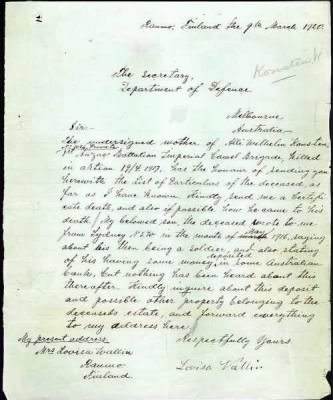 Raumo, Finland the 9th March 1920.
Konsten W
The Secretary,
Department of Defence
Melbourne,
Australia
Sir:-
The undersigned mother of Atle Wilhelm Konsten,
Anzac Battalion Imperial Camel Brigade, killed
in action 19/4 1917, has the honour of sending you
herewith the List of Particulars of the deceased, as
far as I have known. Kindly send me a Certifi-
cate death, and also if possible how he came to his
death. My beloved son, the deceased, wrote to me
from Sydney N.S.W. in the month of May 1916, saying
about his then being a soldier, and also stating
of his having some money deposited in some Australian
Banks, but nothing has been heard about this
thereafter. Kindly inquire about this deposit
and possible other property belonging to the
deceaseds estate, and forward everything
to my address here.
My present address:
Respectfully Yours
Mrs Lovisa Wallin
Lovisa Vallin
Raumo
Finland